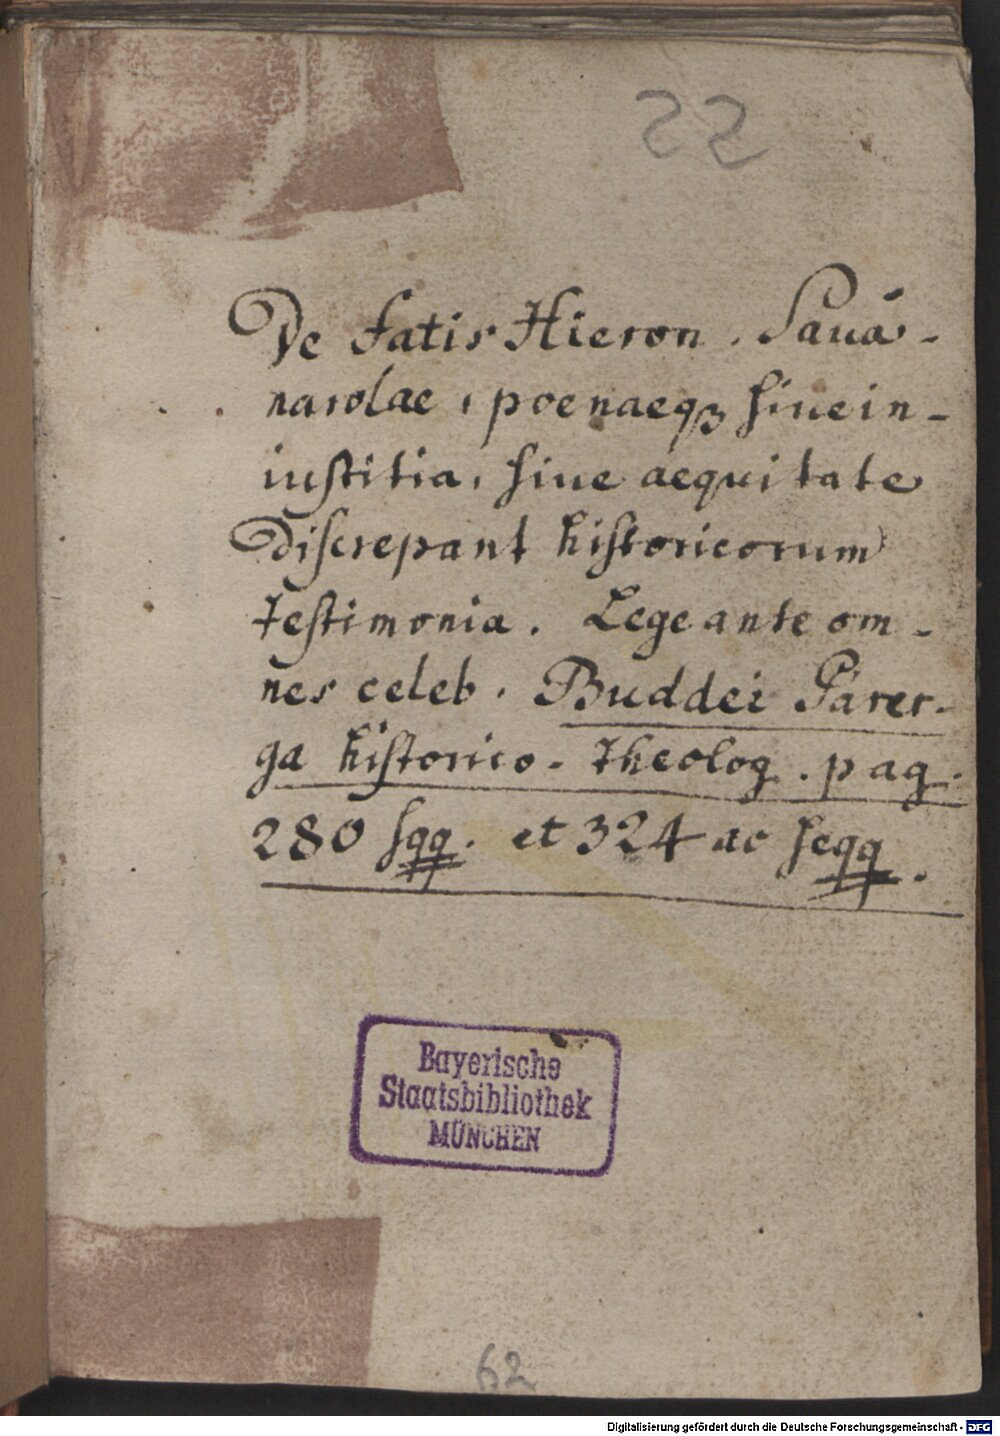 22
De fatis Hieron. Sauá-
narolae, poenaeqꝫ siue in-
iustitia, siue aequitate
Discrepant historicorum
testimonia. Lege ante om-
nes celeb. Buddei Parer-
ga historico-theolog. pag.
280 sqq. et 324 ac seqq.
Bayerische
Staatsbibliothek
MÜNCHEN
62
Digitalisierung gefördert durch die Deutsche Forschungsgemeinschaft - DFG